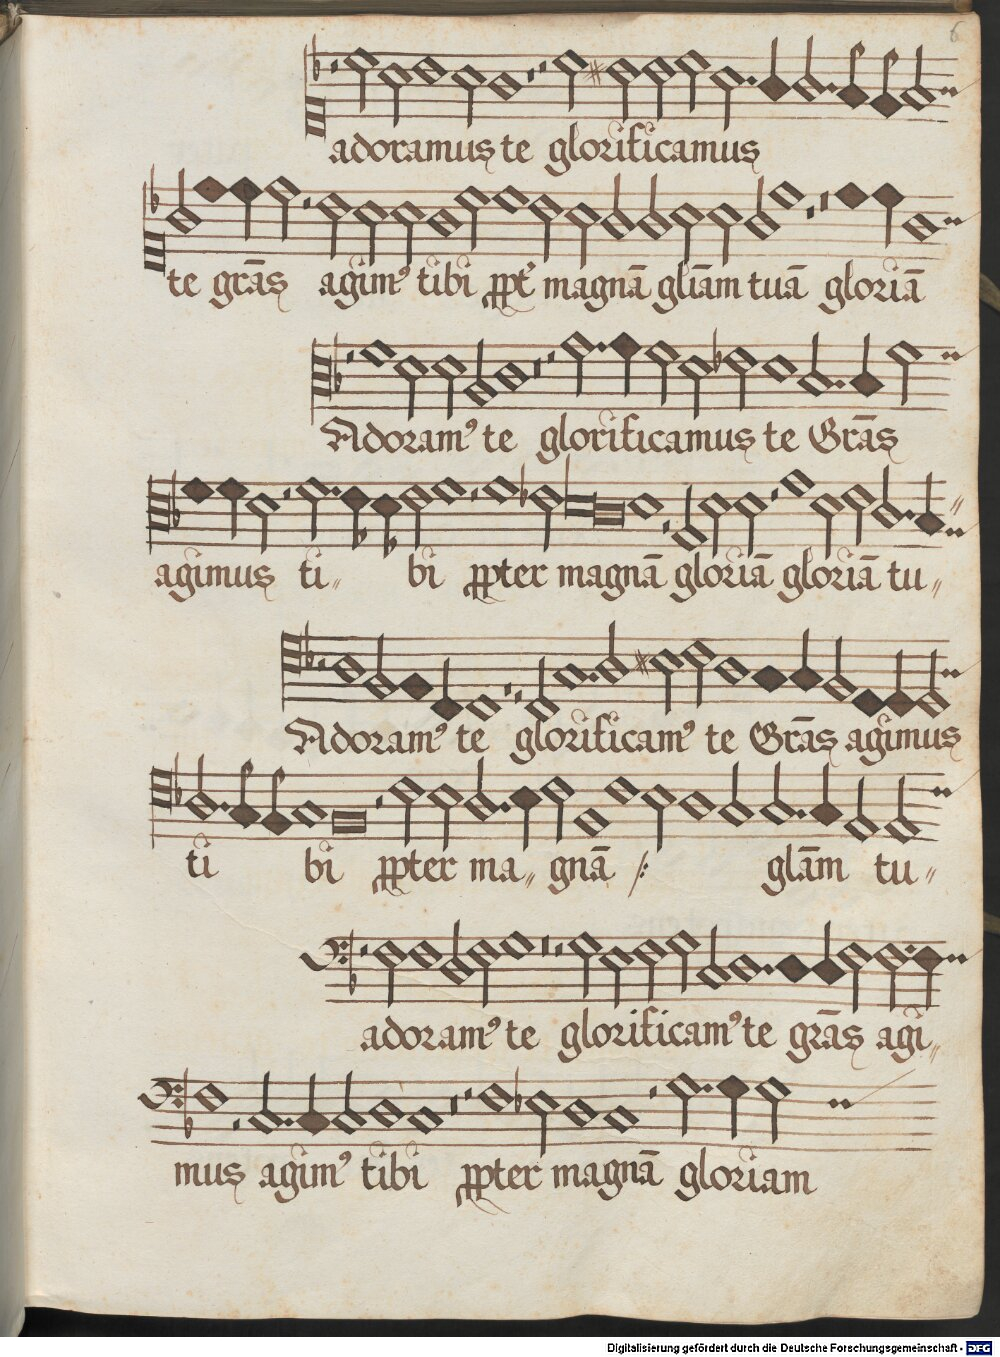 6
adoramus te glorificamus
te grãs agimꝰ tibi ꝓpt' magnã gliãm tuã gloriã
Adoramꝰ te glorificamus te Grãs
agimus ti〃 bi ꝓpter magnã gloriã gloriã tu〃
Adoramꝰ te glorificamꝰ te Grãs agimus
ti bi ꝓpter ma〃 gnã /: glãm tu〃
adoramꝰ te glorificamꝰ te grãs agi〃
mus agimꝰ tibi ꝓpter magnã gloriam
Digitalisierung gefördert durch die Deutsche Forschungsgemeinschaft - DFG